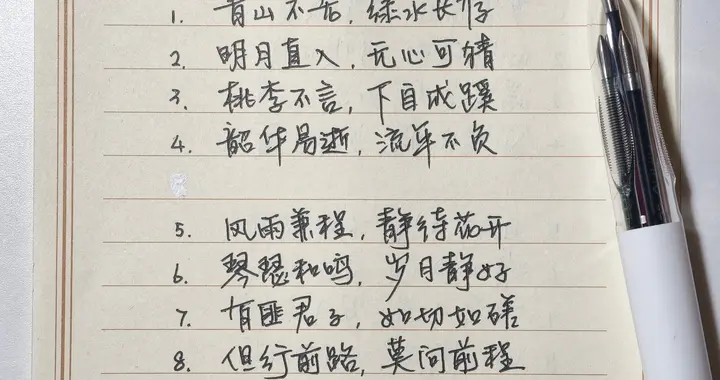 1. 青山不老,绿水长存
2. 明月直入,无心可猜
3. 桃李不言,下自成蹊
4. 韶华易逝,流年不负
5. 风雨兼程,静待花开
6. 琴瑟和鸣,岁月静好
7. 有匪君子,如切如磋
8. 但行前路,莫问前程